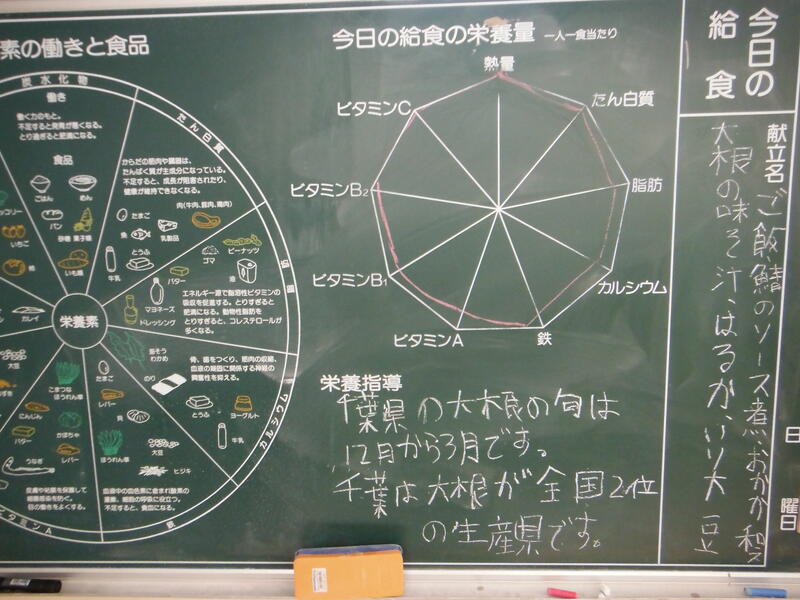 素の働きと食品
炭水化物
働き
働く力のもと。
不足すると発育が悪くなる。
とり過ぎると肥満になる。
食品
ごはん
めん
パン
砂糖 菓子類
いも類
ッコリー
いちご
柿
たん白質
からだの筋肉や臓器は、
たんぱく質が主成分になっている。
不足すると、成長が阻害されたり、
健康が維持できなくなる。
肉(牛肉、豚肉、鶏肉)
たまご
魚
乳製品
とうふ
牛乳
脂肪
ゴマ
ピーナッツ
バター
油
マヨネーズ
ドレッシング
エネルギー源で脂溶性ビタミンの
吸収を促進する。とりすぎると
肥満になる。動物性脂肪を
とりすぎると、コレステロールが
多くなる。
栄養素
カルシウム
骨、歯をつくり、筋肉の収縮、
血液の凝固に関係する神経の
興奮性を抑える。
昆そう
わかめ
のり
とうふ
ヨーグルト
牛乳
鉄
たまご
レバー
貝
大豆
ほうれん草
ヒジキ
血液中の血色素に含まれ酸素の
運搬、細胞の呼吸に役立つ。
不足すると、貧血になる。
ビタミンA
こまつな
ほうれん草
にんじん
かぼちゃ
バター
レバー
うなぎ
皮膚や粘膜を保護して
細菌感染を防ぐ。
目の働きをよくする。
カレイ
大豆
今日の給食の栄養量 一人一食当たり
熱量
たん白質
脂肪
カルシウム
鉄
ビタミンA
ビタミンB1
ビタミンB2
ビタミンC
栄養指導
千葉県の大根の旬は
12月から3月です。
千葉は大根が全国2位
の生産県です。
今日の
給食
献立名
ご飯鯖のソース煮おかか和え
大根の味そ汁、はるか、いり大豆
日
曜日